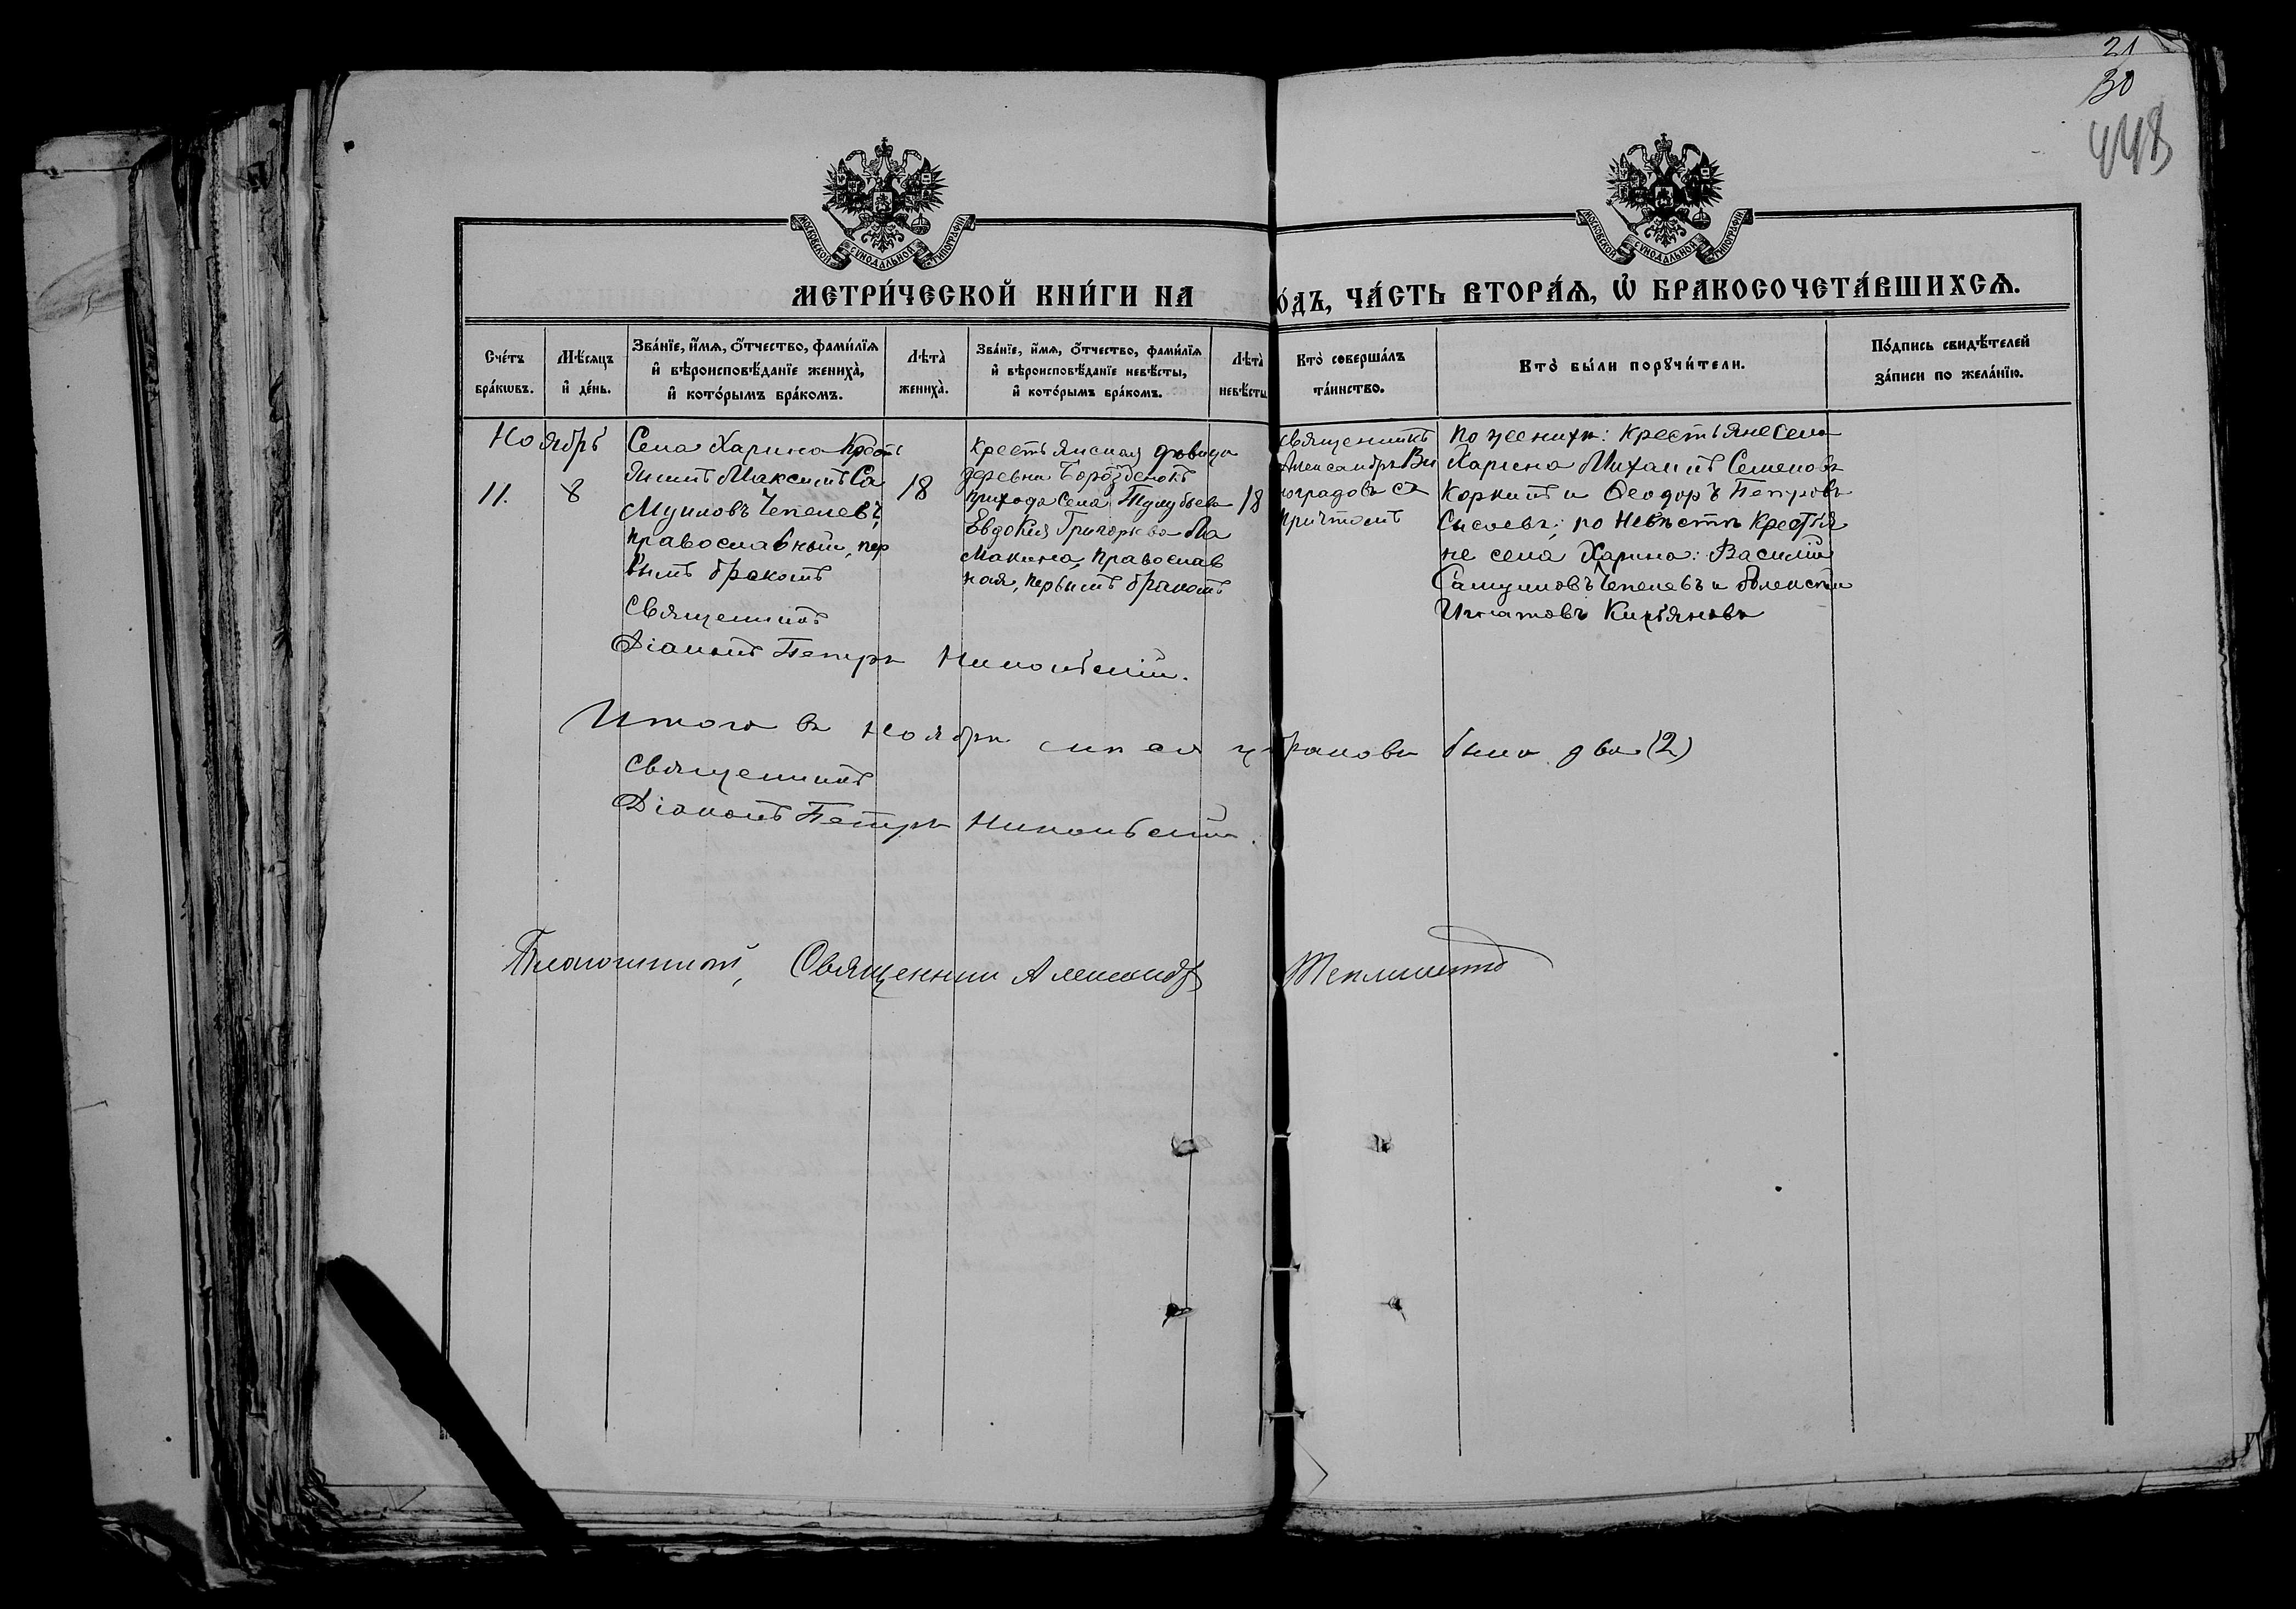 21
30
448
МОСКОВСКОЙ СѴНОДАЛЬНОЙ ТИПОГРАФІИ
МОСКОВСКОЙ СѴНОДАЛЬНОЙ ТИПОГРАФІИ
МЕТРИ́ЧЕСКОЙ КНИ́ГИ НА
О́ДЪ, ЧА́СТЬ ВТОРА́Ѧ, Ѡ҆ БРАКОСОЧЕТА́ВШИХСѦ.
Сче́тъ
бра́кѡвъ.
Мѣ́сѧцъ
и҆ де́нь.
Зва́нїе, и҆́мѧ, ѻ҆́тчество, фами́лїѧ
и҆ вѣроисповѣ́данїе жениха̀,
и҆ кото́рымъ бра́комъ.
Лѣта̀
жениха̀.
Зва́нїе, и҆́мѧ, ѻ҆́тчество, фами́лїѧ
и҆ вѣроисповѣ́данїе невѣ́сты,
и҆ кото́рымъ бра́комъ.
Лѣта̀
невѣ́сты
Кто̀ соверша́лъ
та́инство.
Кто̀ бы́ли порꙋчи́тели.
По́дпись свидѣ́телей
за́писи по жела́нїю.
Ноябрь
11.
8
Села Харина Кресть
янинъ Максимъ Са
муиловъ Чепелевъ,
православный, пер
вымъ бракомъ
18
Крестьянская дѣвица
деревни Бороздёнокъ
прихода села
Евдокия Григорьева Ма
макина, православ
ная, первымъ бракомъ
18
Священникъ
Александръ Ви
ноградовъ съ
причтомъ
По женихѣ: крестьяне села
Харина Михаилъ Семеновъ
Коркинъ и Ѳеодоръ Петровъ
Сысоевъ; по невѣстѣ крестья
не села Харина: Василій
Самуиловъ Чепелевъ и Алексѣй
Игнатовъ Кирьяновъ
Священникъ
Діаконъ Петръ Никольскій.
Итого въ ноябрѣ мѣсяцѣ браковъ было два (2)
Священникъ
Діаконъ Петръ Никольскій.
Благочинный, Священникъ Александръ